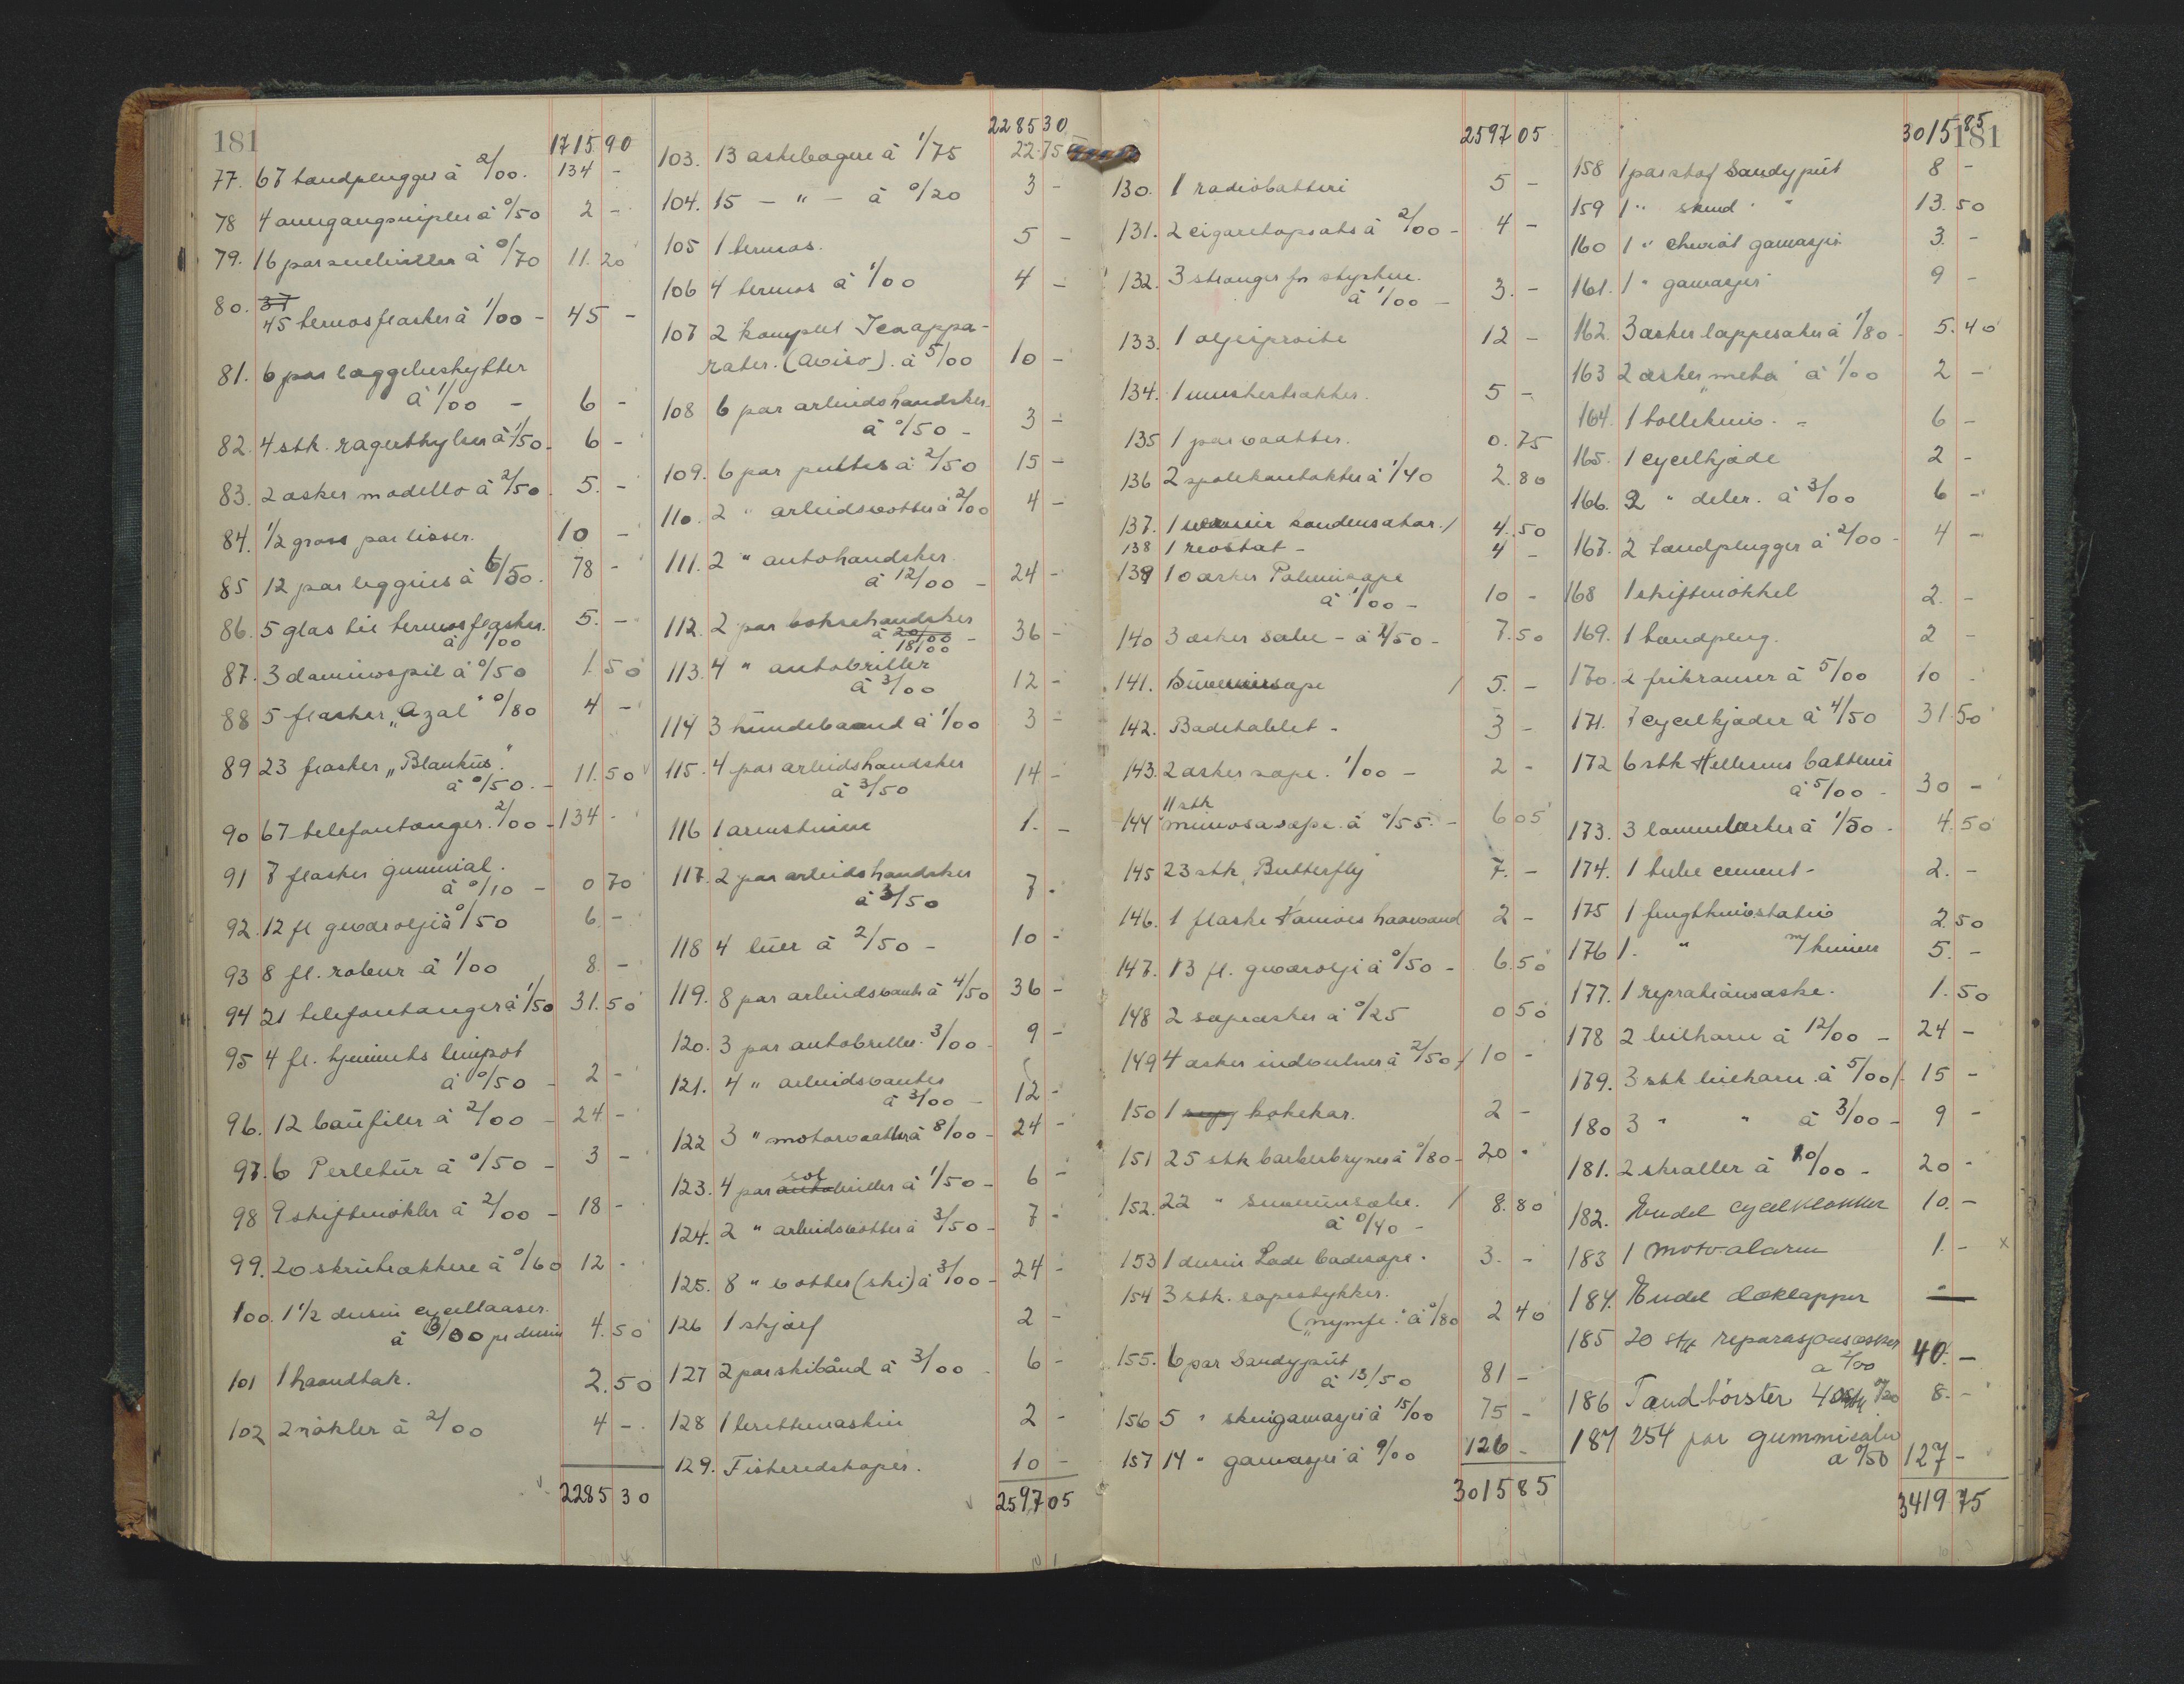 181
1715 90
77. 67 tandplugger à 2/00. 134 -
78 4 overgangsnipler à 0/50 2 -
79. 16 par snebriller à 0/70 11.20
80. 37
45 termosflasker à 1/00 - 45 -
81. 6 par læggebeskytter
à 1/00 - 6 -
82. 4 stk. ragerthylser à 1/50 - 6 -
83. 2 asker modello à 2/50. 5. -
84. 1/2 gross par lisser. 10 -
85 12 par leggins à 6/50. 78 -
86. 5 glas til termosflasker. 5. -
à 1/00
87. 3 dominospil à 0/50 1.50
88 5 flasker „Azal" 0/80 4 -
89 23 flasker „Blankus."
à 0/50. - 11.50
90 67 telefontanger. 2/00 - 134 -
91 7 flasker gummial.
à 0/10 - 0 70
92. 12 fl gevarolje à 0/50 6 -
93 8 fl. robur à 1/00 8. -
94 21 telefontanger à 1/50 31.50
95 4 fl. limpot
à 0/50 - 2 -
96. 12 baufiler à 2/00 - 24 -
97. 6 Perletur à 0/50 - 3 -
98 9 skiftnøkler à 2/00 - 18 -
99. 20 skrutrækkere à 0/60 12 -
100. 1 1/2 dusin cycellaaser.
à 3/00 pr dusin 4.50
101 1 haandtak. 2.50
102 2 nøkler à 2/00 4 -
2285 30
2285 30
103. 13 askebægere à 1/75 22.75
104. 15 - " - à 0/20 3 -
105 1 termos. 5 -
106 4 termos à 1/00 4 -
107 2 komplet Icaappa-
rater. (Aviso). à 5/00 10 -
108 6 par arbeidshandsker
à 0/50 - 3 -
109. 6 par puttis à 2/50 15 -
110. 2 " arbeidsvotter à 2/00 4 -
111. 2 " autohandsker
à 12/00 - 24 -
112. 2 par boksehandsker
à 20/00
18/00 - 36 -
113. 4 " autobriller
à 3/00 12 -
114 3 hundebaand à 1/00 3 -
115. 4 par arbeidshandsker
à 3/50 14 -
116 1 1. -
117. 2 par arbeidshandsker
à 3/50 7 -
118 4 luer à 2/50 - 10 -
119. 8 par arbeidsvanter à 4/50 36 -
120. 3 par autobriller. 3/00 - 9 -
121. 4 " arbeidsvanter
à 3/00 - 12 -
122 3 " motorvaatter à 8/00 - 24 -
sol
123. 4 par autobriller à 1/50 - 6 -
124. 2 " arbeidsvotter à 3/50 - 7 -
125. 8 " votter (ski) à 3/00 - 24 -
126 1 skjærf 2 -
127 2 par skibånd à 3/00 - 6 -
128 1 berettmaskin 2 -
129. Fiskeredskaper. 10 -
2597.05
2597 05
130. 1 radiobatteri 5 -
131. 2 cigaretopsats à 2/00 - 4 -
132. 3 stranger for
à 1/00 - 3. -
133. 1 oljesprøite 12 -
134. 1 5 -
135 1 par vaatter. 0.75
136 2 spolekontakter à 1/40 2.80
137. 1 kondensator. / 4.50
138 1 reostat - 4 -
139 10 asker Palmisape
à 1/00 - 10 -
140 3 æsker salve - à 2/50 - 7.50
141. / 5. -
142. Badetablet - 3 -
143. 2 asker sape. 1/00 - 2 -
11 stk
144 mimosasape. à 0/55. - 6 05
145 23 stk Butterfly 7. -
146. 1 flaske haarvand 2 -
147. 13 fl. gevarolje à 0/50 - 6.50
148 2 sapeasker à 0/25 0 50
149 4 asker à 2/50 / 10 -
150 1 kokekar. 2 -
151 25 stk barberbryner à 0/80 - 20 -
152. 22 " / 8.80
à 0/40 -
153 1 dusin Lade badesape. 3. -
154 3 stk. sapestykker.
(„nymfe." à 0/80 2 40
155. 6 par Sandyput
à 13/50 81 -
156 5 " skingamasjer à 15/00 75 -
157 14 " gamasjer à 9/00 126 -
3015 85
3015 85
181
158 1 par stof Sandyput 8 -
159 1 " skind " " 13.50
160 1 " cheviot gamasjer 3. -
161. 1 " gamasjer 9 -
162. 3 asker lappesaker à 1/80 - 5.40
163 2 æsker „meta" à 1/00 2 -
164. 1 tollekniv. - 6 -
165. 1 cycelkjæde 2 -
166. 2 " deler. à 3/00 6 -
167. 2 tandplugger à 2/00 - 4 -
168 1 skiftnøkkel 2. -
169. 1 tandplug. 2 -
170. 2 frikranser à 5/00 10 -
171. 7 cycelkjæder à 4/50 31.50
172 6 stk Hellesens batterier
à 5/00 - 30 -
173. 3 à 1/50 - 4.50
174. 1 tube cement - 2. -
175 1 2.50
176 1. " m/ 5. -
177. 1 repratiånsaske. 1.50
178 2 bilhorn à 12/00 - 24 -
179. 3 stk bilhorn à 5/00 / 15 -
180 3 " " à 3/00 - 9 -
181. 2 skraller à 10/00 - 20 -
182. Endel cycelklokker 10. -
183 1 Motoalarm 1. - x
184. Endel dæklapper -
185 20 stk reparasjonsæsker
a 2/00 40. -
186 Tandbørster 40 stk 0/20 8. -
187 254 par gummisåler
a 0/50 127 -
3419 75